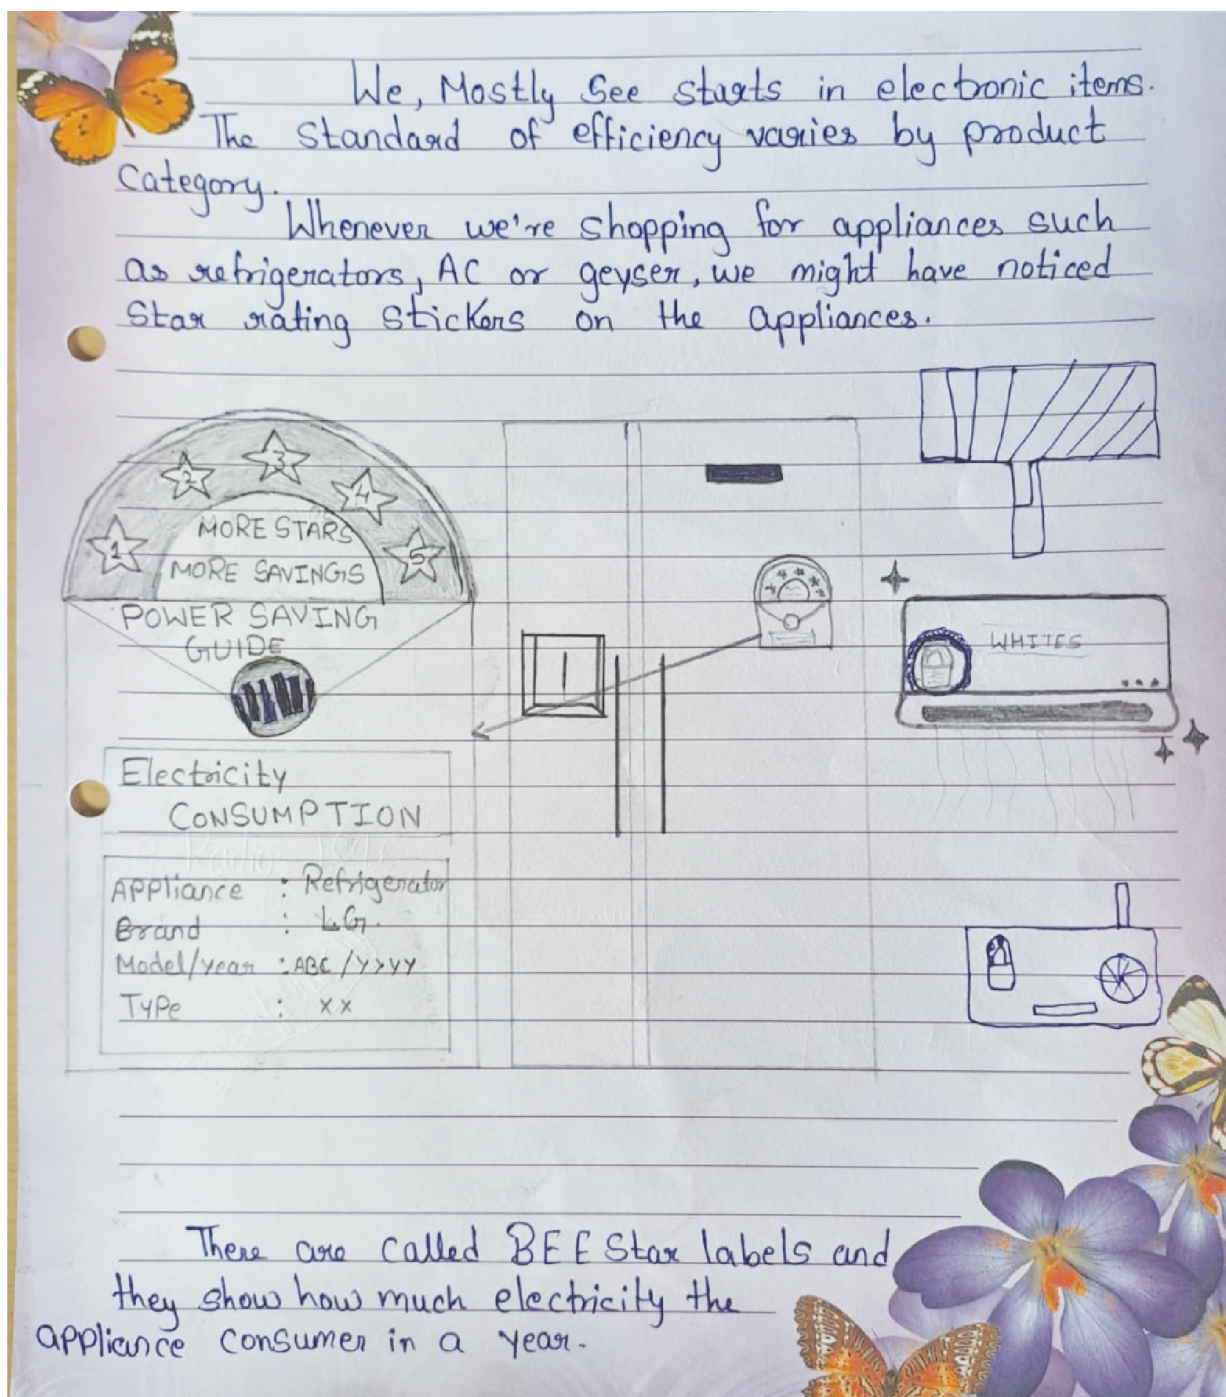 We, Mostly See starts in electronic items.
The Standard of efficiency varies by product
Category.
Whenever we're shopping for appliances such
as refrigerators, AC or geyser, we might have noticed
Star rating stickers on the appliances.
1 2 3 4 5
MORE STARS
MORE SAVINGS
POWER SAVING
GUIDE
WHITES
Electricity
CONSUMPTION
Appliance : Refrigerator
Brand : LG.
Model/year : ABC / YYYY
Type : xx
There are called BEE Star labels and
they show how much electricity the
appliance consumer in a year.